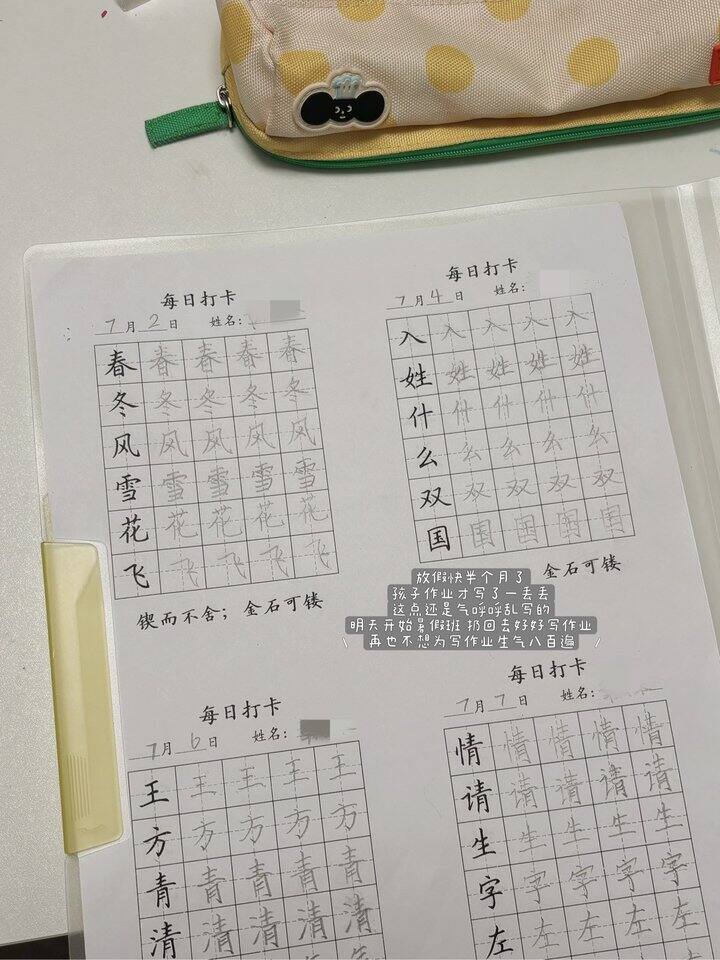 每日打卡
7月2日 姓名：
春 春 春 春 春
冬 冬 冬 冬 冬
风 风 风 风 风
雪 雪 雪 雪 雪
花 花 花 花 花
飞 飞 飞 飞 飞
锲而不舍；金石可镂
每日打卡
7月4日 姓名：
入 入 入 入 入
姓 姓 姓 姓 姓
什 什 什 什 什
么 么 么 么 么
双 双 双 双 双
国 国 国 国 国
金石可镂
放假快半个月了
孩子作业才写了一丢丢
这点还是气呼呼乱写的
明天开始暑假班 扔回去好好写作业
\ 再也不想为写作业生气八百遍 /
每日打卡
7月6日 姓名：
王 王 王 王 王
方 方 方 方 方
青 青 青 青 青
清 清 清 清 清
每日打卡
7月7日 姓名：
情 情 情 情 情
请 请 请 请 请
生 生 生 生 生
字 字 字 字 字
左 左 左 左 左